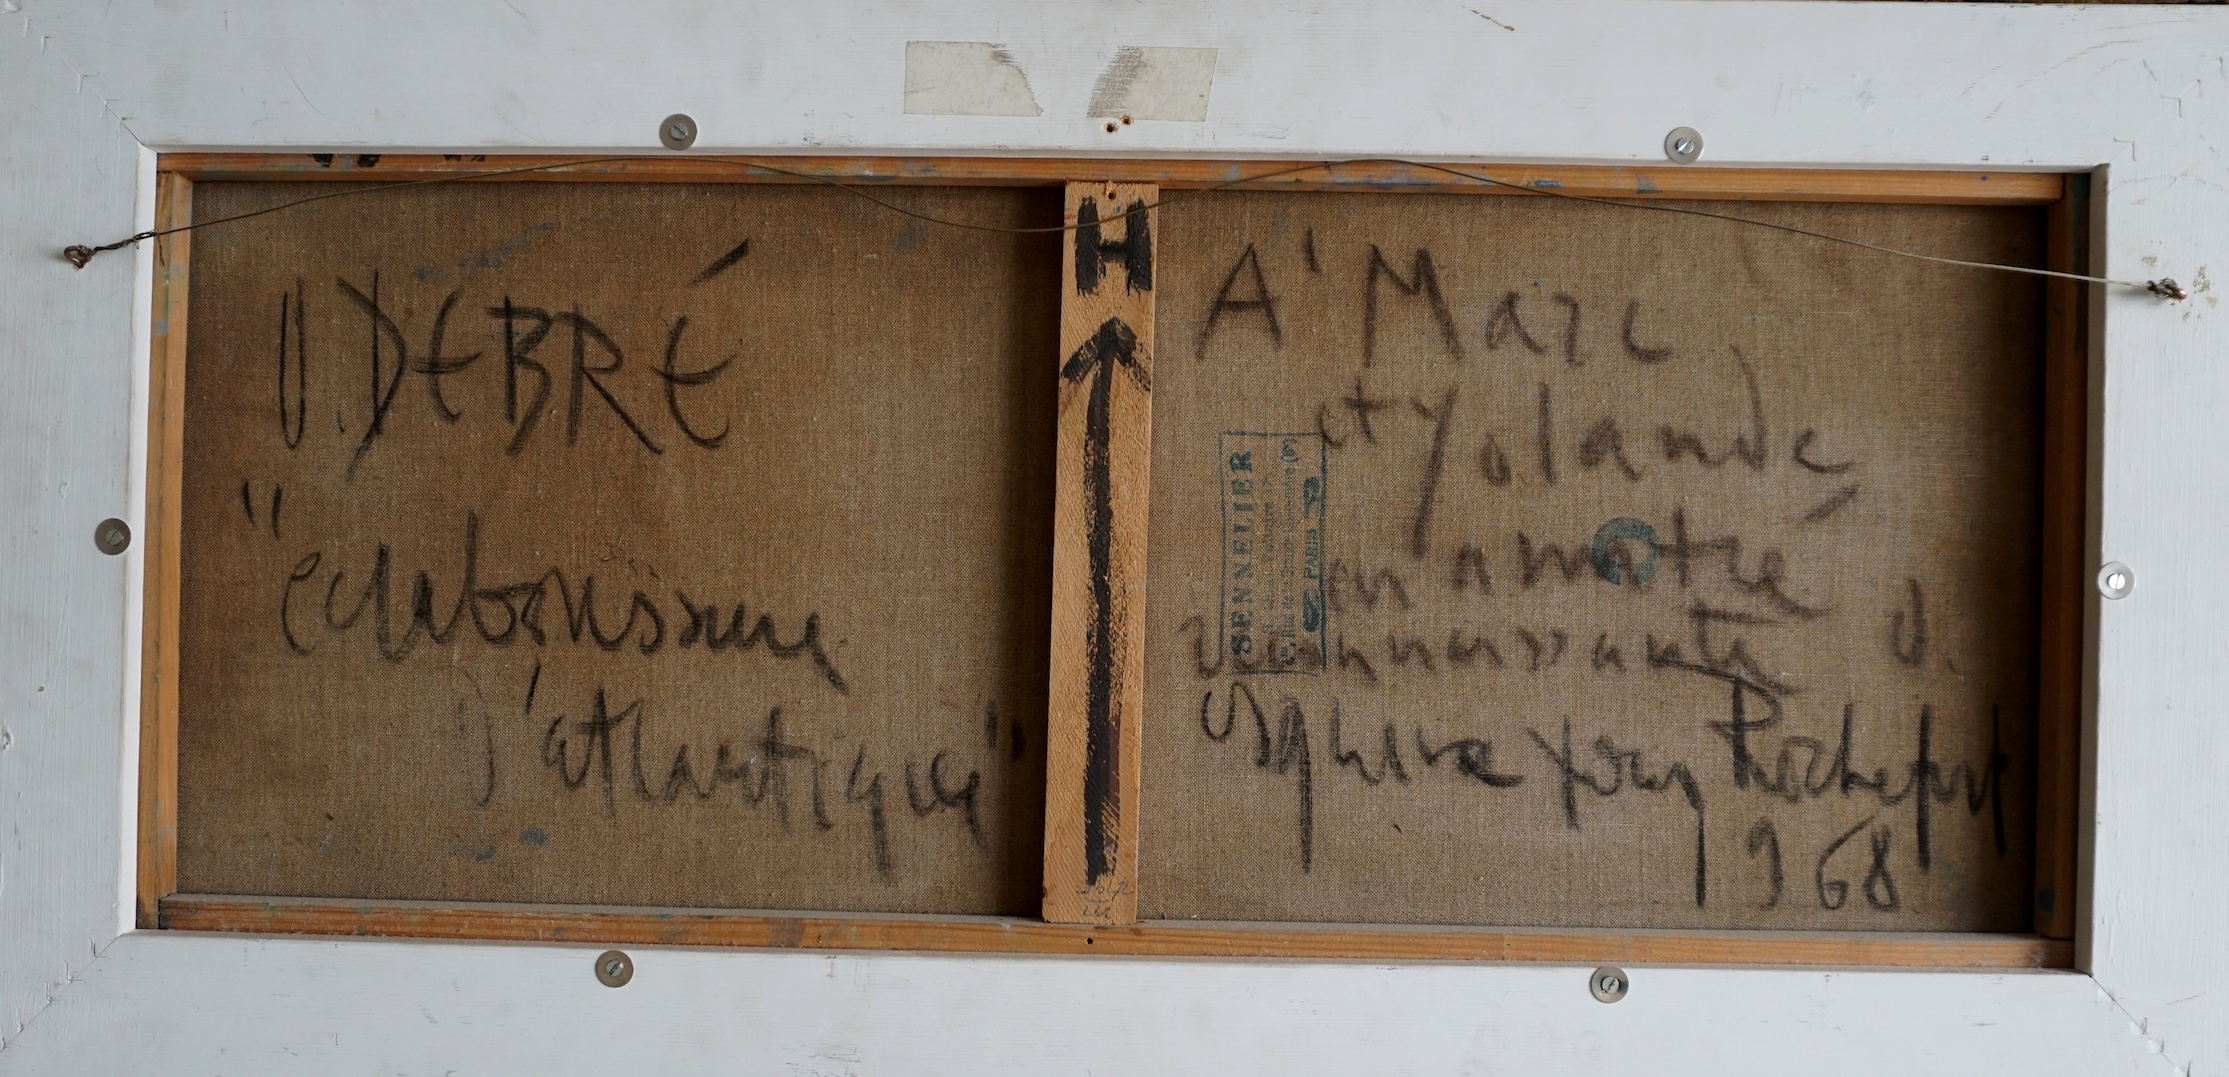 O. DEBRÉ
"eclaboussure
d'atlantique"
H
A' Marc
et Yolande,
en amitié
reconnaissante O.
Esquisse pour Rochefort
968
SENNELIER
PARIS